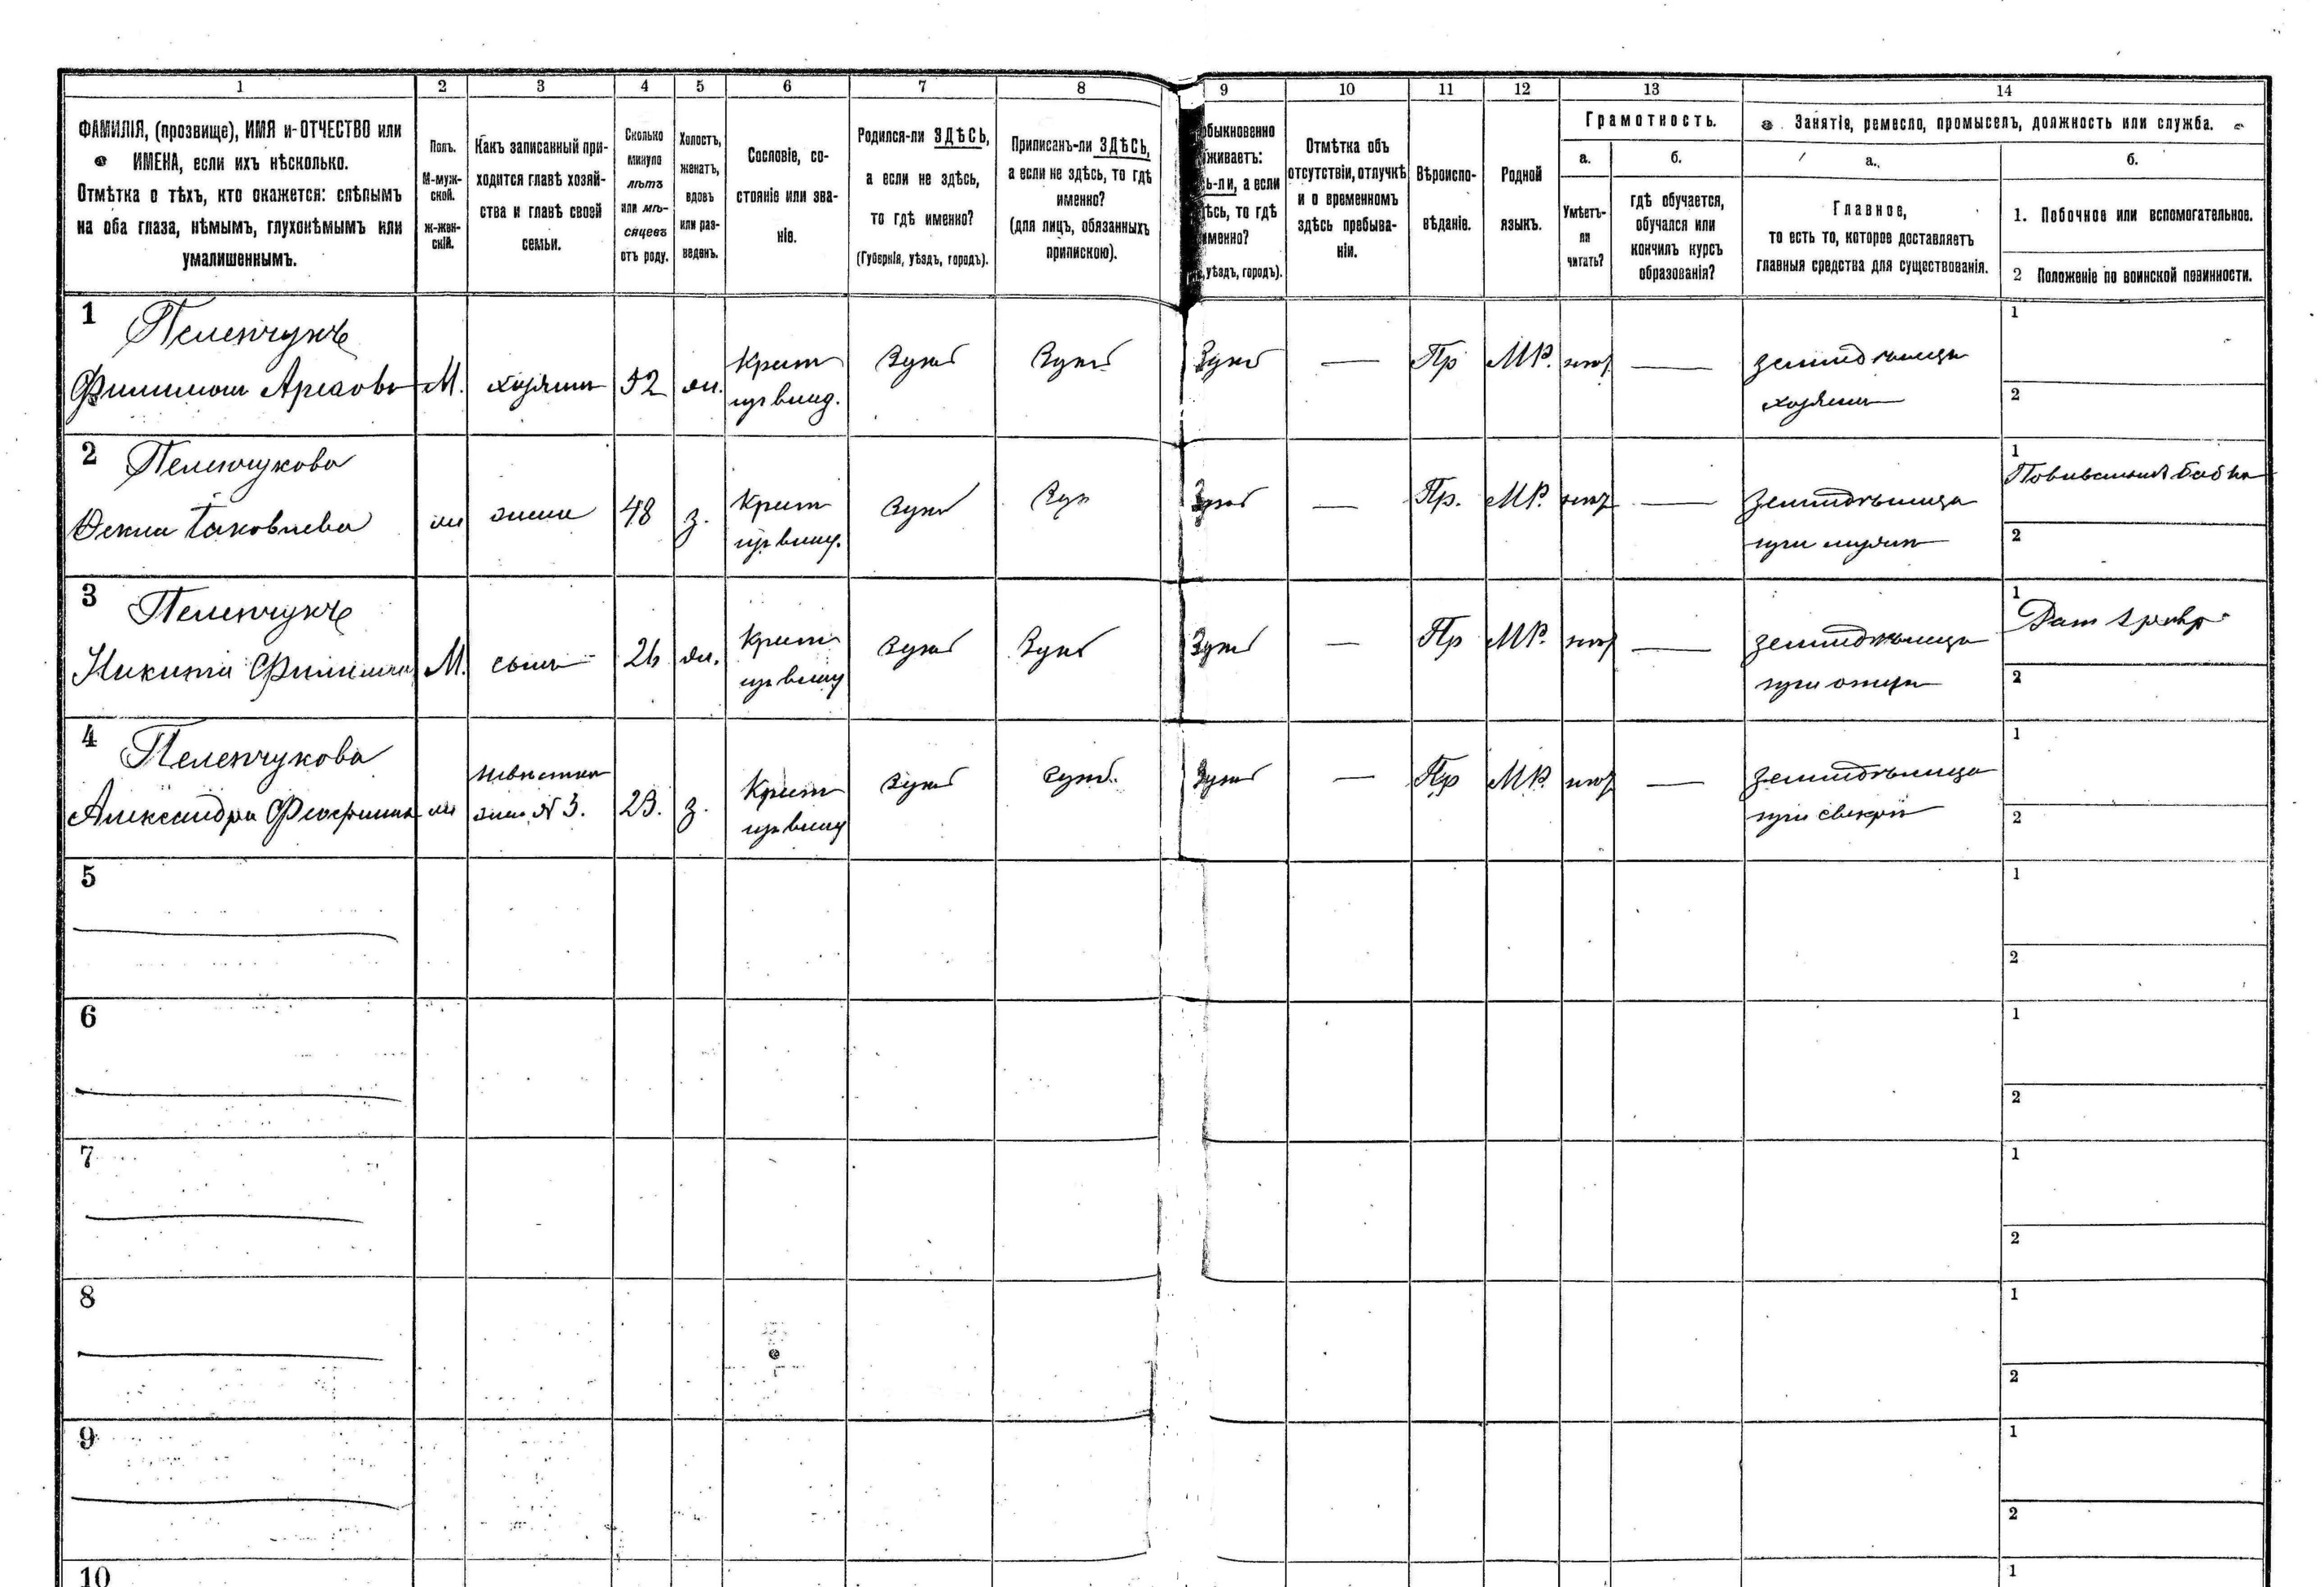 1 2 3 4 5 6 7 8 9 10 11 12 13 14
ФАМИЛІЯ, (прозвище), ИМЯ и ОТЧЕСТВО или
ИМЕНА, если ихъ нѣсколько.
Отмѣтка о тѣхъ, кто окажется: слѣпымъ
на оба глаза, нѣмымъ, глухонѣмымъ или
умалишеннымъ.
Полъ.
М-муж-
ской.
ж-жен-
скій.
Какъ записанный при-
ходится главѣ хозяй-
ства и главѣ своей
семьи.
Сколько
минуло
лѣтъ
или мѣ-
сяцевъ
отъ роду.
Холостъ,
женатъ,
вдовъ
или раз-
веденъ.
Сословіе, со-
стояніе или зва-
ніе.
Родился-ли ЗДѢСЬ,
а если не здѣсь,
то гдѣ именно?
(Губернія, уѣздъ, городъ).
Приписанъ-ли ЗДѢСЬ,
а если не здѣсь, то гдѣ
именно?
(для лицъ, обязанныхъ
припискою).
быкновенно
живаетъ:
ь-ли, а если
ѣсь, то гдѣ
именно?
уѣздъ, городъ).
Отмѣтка объ
отсутствіи, отлучкѣ
и о временномъ
здѣсь пребыва-
ніи.
Вѣроиспо-
вѣданіе.
Родной
языкъ.
Грамотность.
а.
Умѣетъ-
ли
читать?
б.
гдѣ обучается,
обучался или
кончилъ курсъ
образованія?
Занятія, ремесло, промыселъ, должность или служба.
а.
Главное,
то есть то, которое доставляетъ
главныя средства для существованія.
б.
1. Побочное или вспомогательное.
2 Положеніе по воинской повинности.
1
Пеленчукъ
Филимонъ
М.
хозяинъ
52
жен.
Крест
Здѣсь
Здѣсь
Здѣсь
—
Пр
МР.
—
земледѣлецъ
хозяинъ
1
2
2
Пеленчукова
Фекла Іаковлева
жена
48
з.
Крест
Здѣсь
Здѣсь
—
Пр.
МР.
—
земледѣлица
при мужѣ
1
Повивальная бабка
2
3
Пеленчукъ
Никита
М.
сынъ
26
жен.
Крест
Здѣсь
Здѣсь
Здѣсь
—
Пр
МР.
—
земледѣлецъ
при отцѣ
1
2
4
Пеленчукова
Александра
невѣстка
жена № 3.
23.
з.
Крест
Здѣсь
Здѣсь
Здѣсь
—
Пр
МР.
—
земледѣлица
при свекрѣ
1
2
5
1
2
6
1
2
7
1
2
8
1
2
9
1
2
10
1